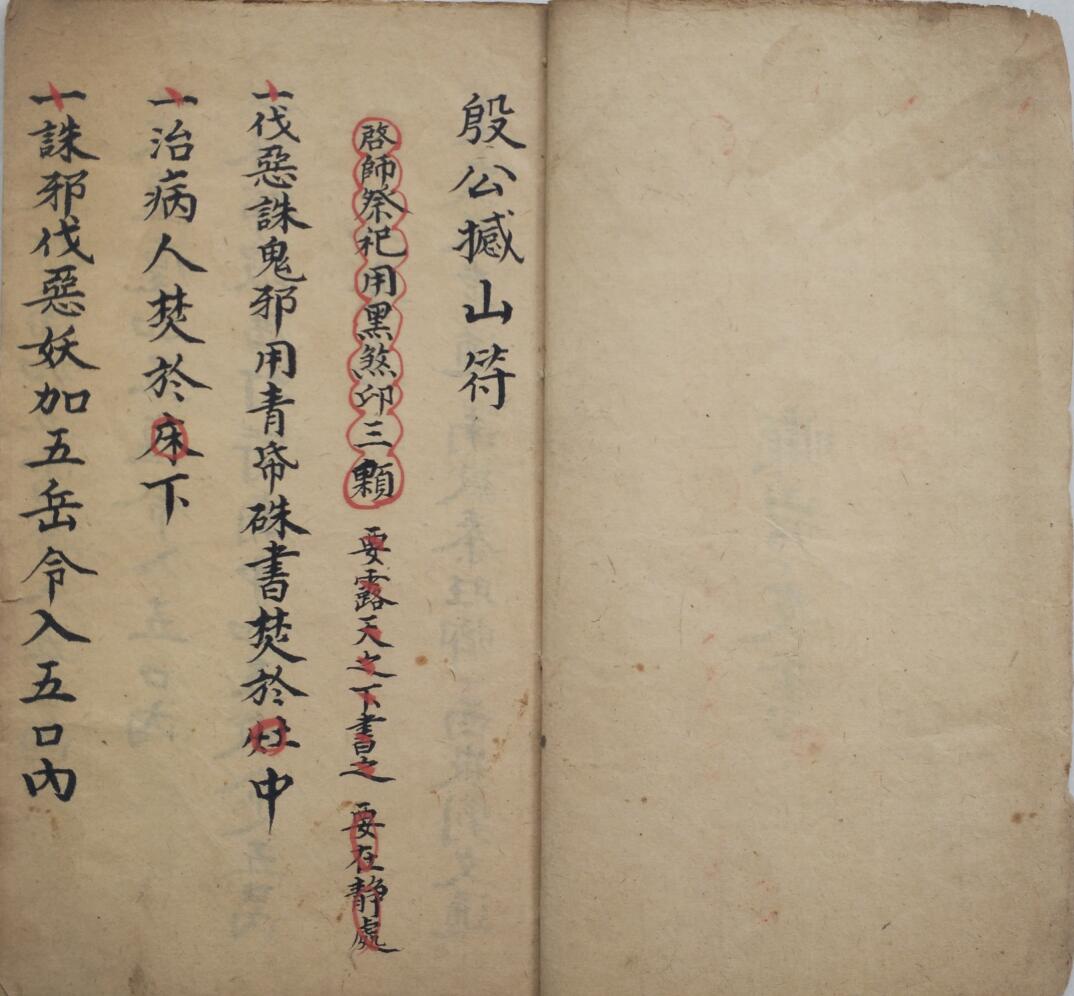 殷公撼山符
啓師祭祀用黑煞印三顆 要露天之下書之 要在静處
一伐惡誅鬼邪用青帋硃書焚於灶中
一治病人焚於床下
一誅邪伐惡妖加五岳令入五口內